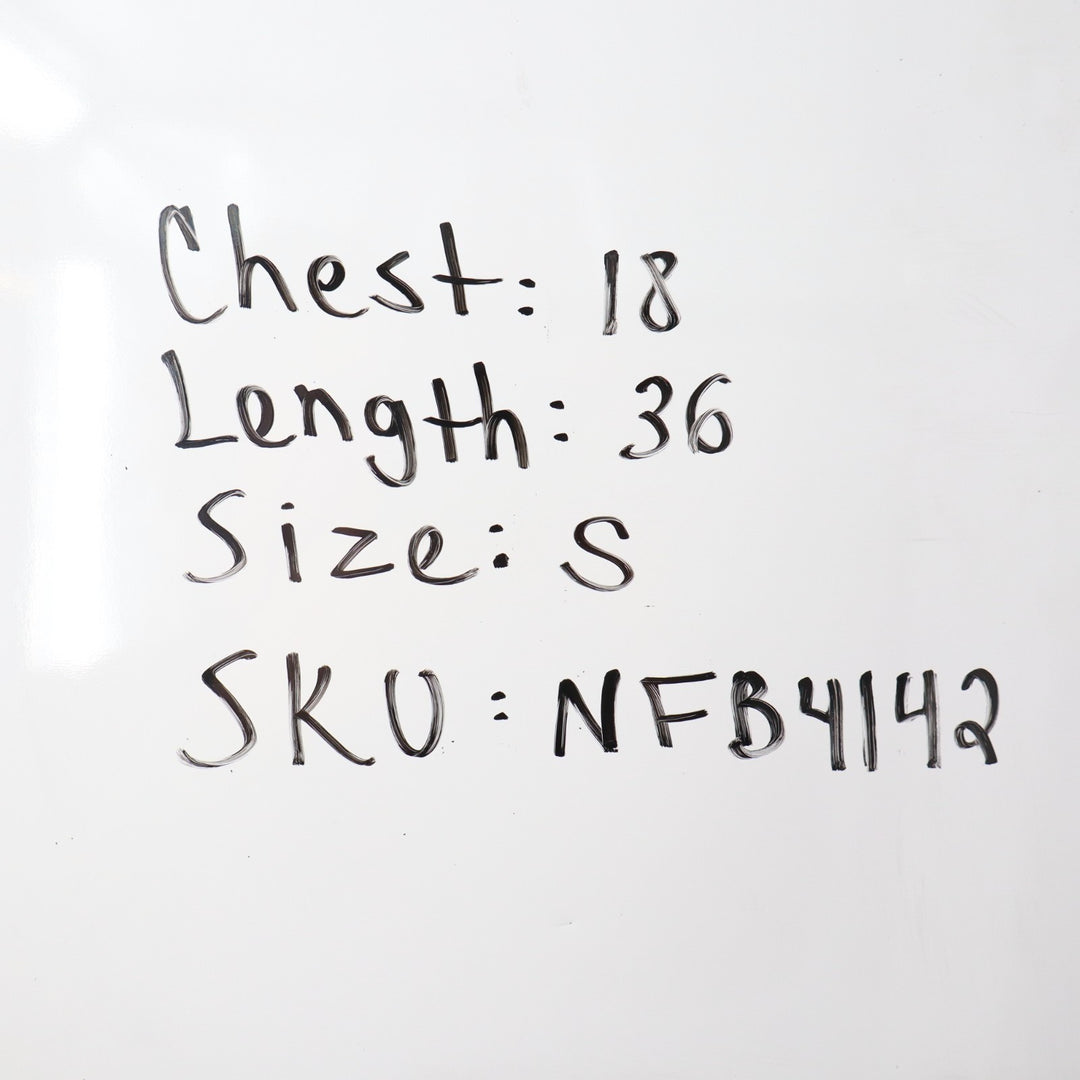 Chest: 18
Length: 36
Size: S
SKU: NFB4142